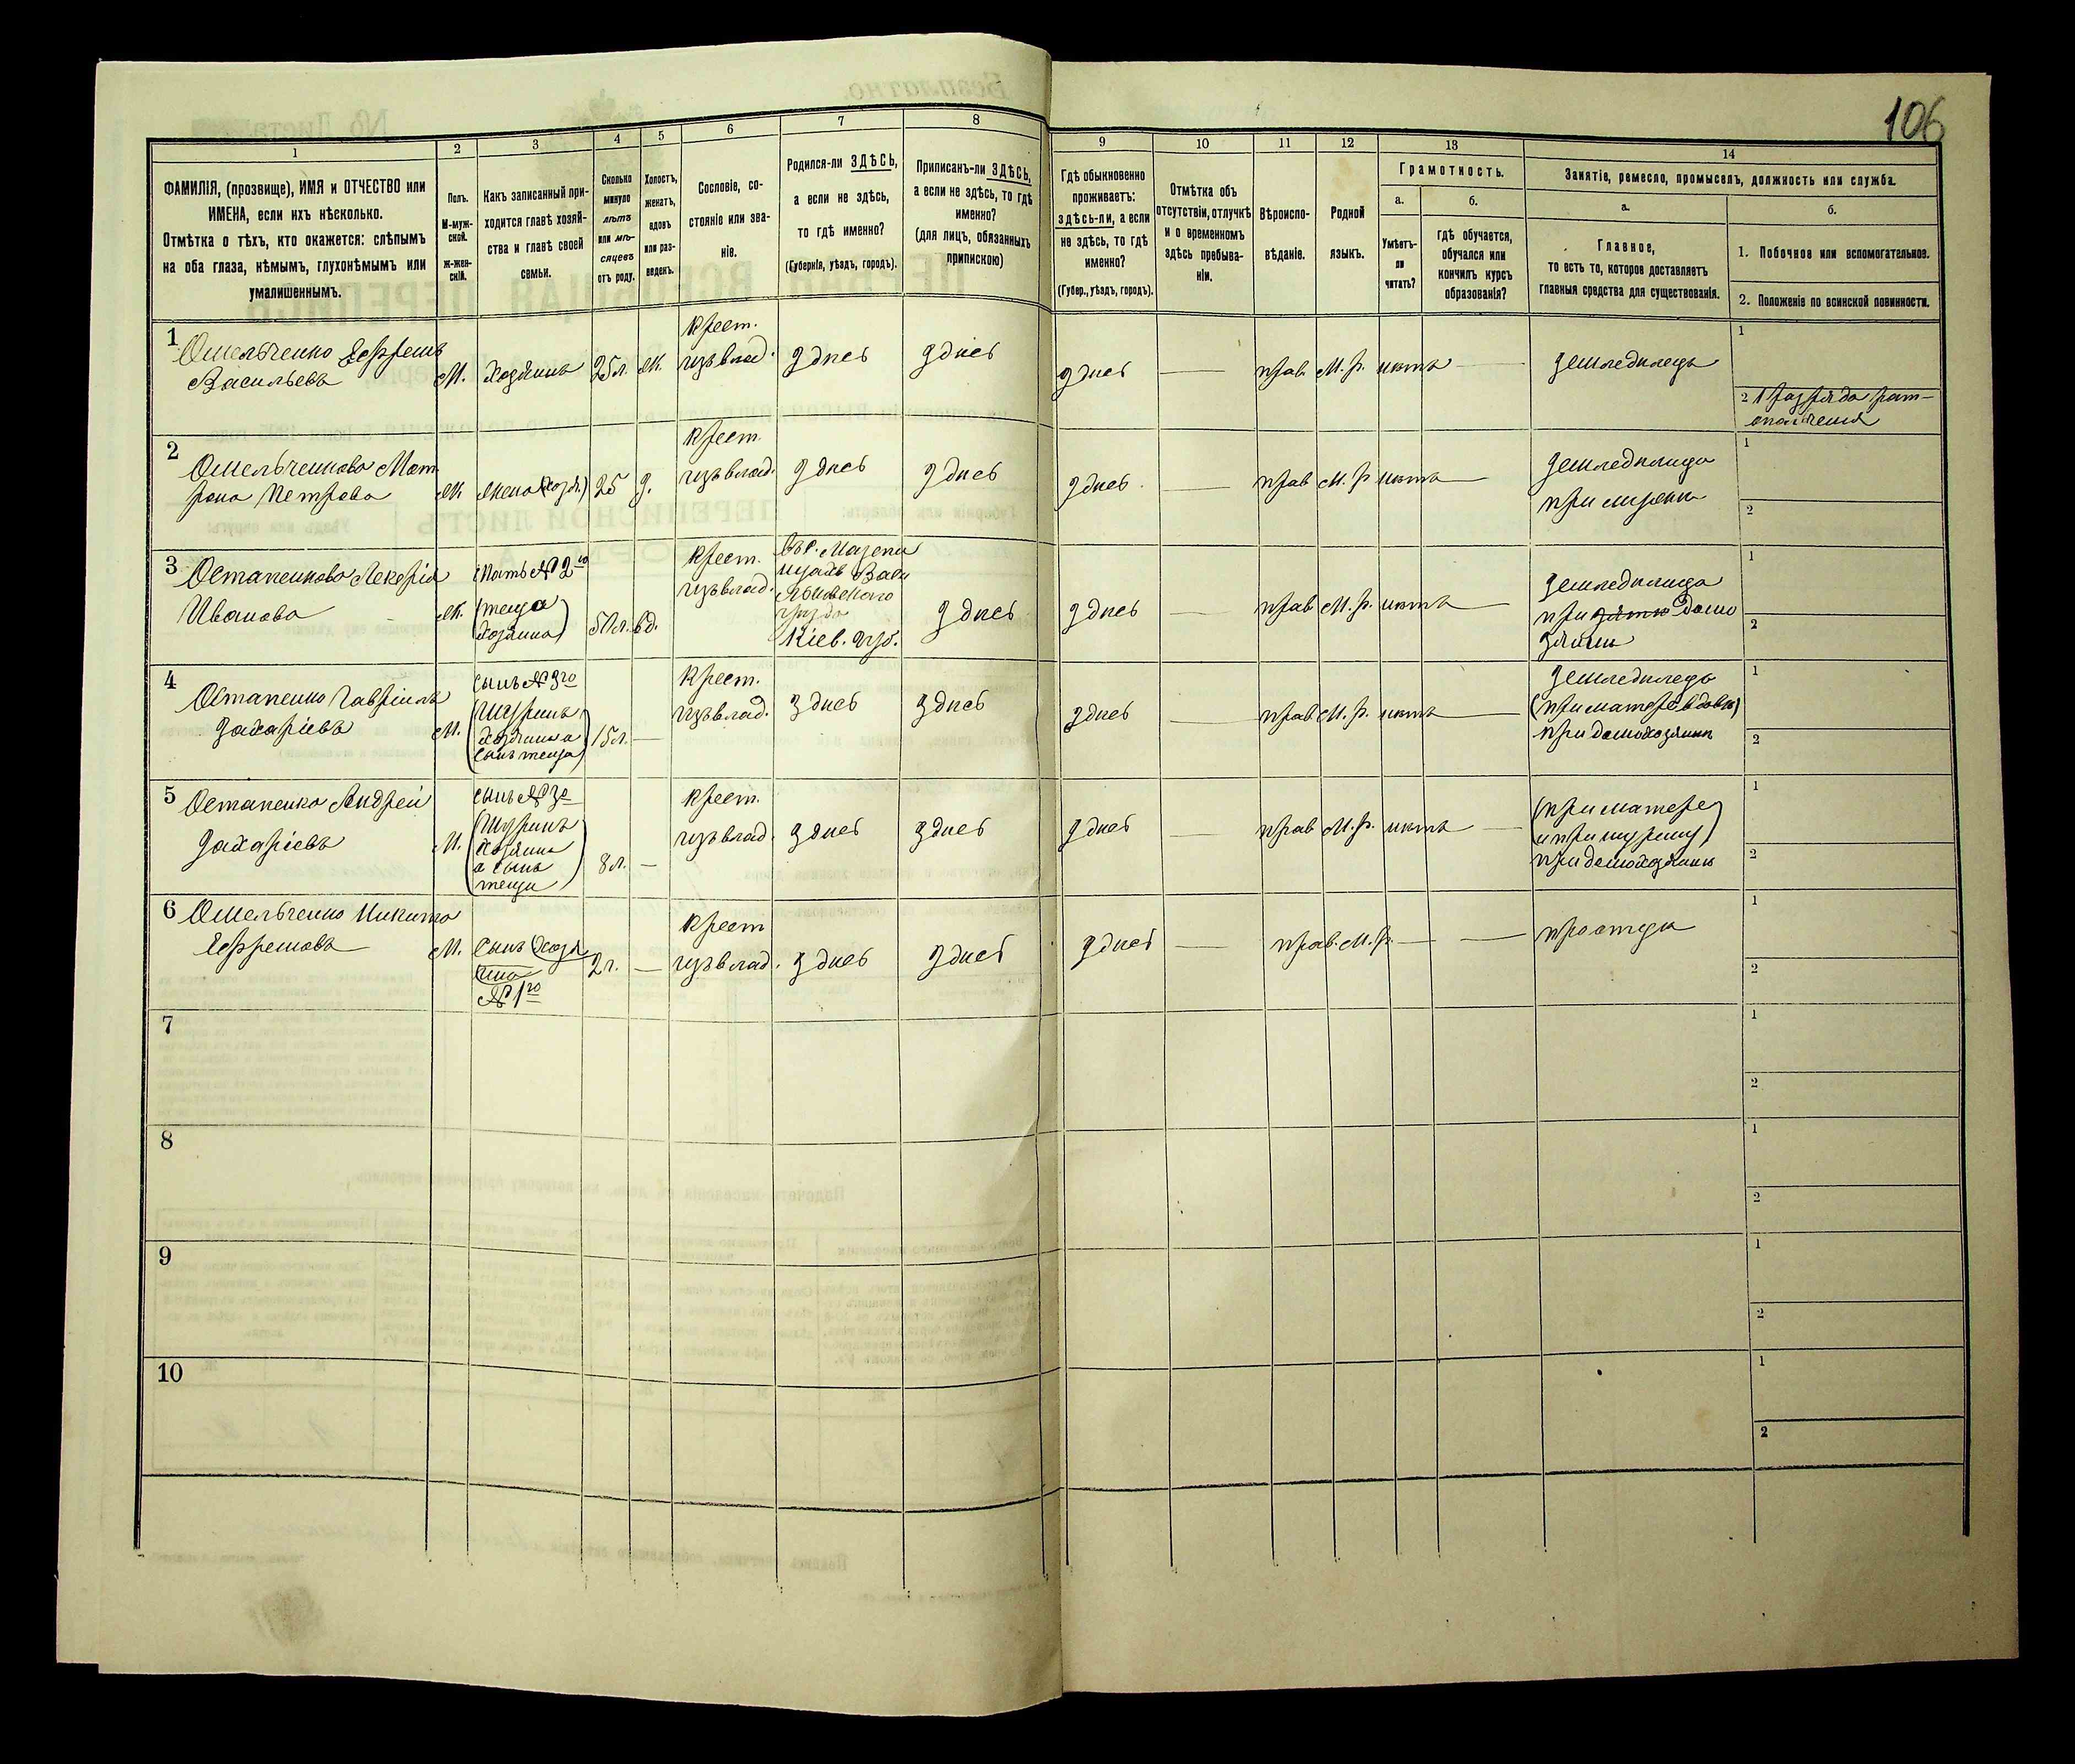 106
1
2
3
4
5
6
7
8
9
10
11
12
13
14
ФАМИЛІЯ, (прозвище), ИМЯ и ОТЧЕСТВО или
ИМЕНА, если ихъ нѣсколько.
Отмѣтка о тѣхъ, кто окажется: слѣпымъ
на оба глаза, нѣмымъ, глухонѣмымъ или
умалишеннымъ.
Полъ.
М-муж-
ской.
Ж-жен-
скій.
Какъ записанный при-
ходится главѣ хозяй-
ства и главѣ своей
семьи.
Сколько
минуло
лѣтъ
или мѣ-
сяцевъ
отъ роду.
Холостъ,
женатъ,
вдовъ
или раз-
веденъ.
Сословіе, со-
стояніе или зва-
ніе.
Родился-ли ЗДѢСЬ,
а если не здѣсь,
то гдѣ именно?
(Губернія, уѣздъ, городъ).
Приписанъ-ли ЗДѢСЬ,
а если не здѣсь, то гдѣ
именно?
(для лицъ, обязанныхъ
припискою)
Гдѣ обыкновенно
проживаетъ:
здѣсь-ли, а если
не здѣсь, то гдѣ
именно?
(Губер., уѣздъ, городъ).
Отмѣтка объ
отсутствіи, отлучкѣ
и о временномъ
здѣсь пребыва-
ніи.
Вѣроиспо-
вѣданіе.
Родной
языкъ.
Грамотность.
а.
Умѣетъ-
ли
читать?
б.
гдѣ обучается,
обучался или
кончилъ курсъ
образованія?
Занятіе, ремесло, промыселъ, должность или служба.
а.
Главное,
то есть то, которое доставляетъ
главныя средства для существованія.
б.
1. Побочное или вспомогательное.
2. Положеніе по воинской повинности.
1
Омельченко Ефремъ
Васильевъ
М.
Хозяинъ
25 л.
Ж.
Крест.
изъ влад.
здѣсь
здѣсь
здѣсь
прав.
М. р.
нѣтъ
земледѣлецъ
1
2 1 разряда рат-
ополченія
2
Омельченкова Мат
рона Петрова
Ж
Жена (хозя.)
25
з.
Крест.
изъ влад.
здѣсь
здѣсь
здѣсь
прав
М. р.
нѣтъ
земледѣлица
при мужѣ
1
2
3
Остапенкова Лекерія
Иванова
Ж.
Мать № 2го
(теща
хозяина)
50 л.
вд.
Крест.
изъ влад.
Вас
Кіев. губ.
здѣсь
здѣсь
прав
М. р.
нѣтъ
земледѣлица
при домо
1
2
4
Остапенко Гавріилъ
Захаріевъ
М.
сынъ № 3го
(Шуринъ
хозяина а
сынъ тещи)
15 л.
Крест.
изъ влад.
здѣсь
здѣсь
здѣсь
прав
М. р.
нѣтъ
земледѣлецъ
(при матери вдовѣ)
при домохозяинѣ
1
2
5
Остапенко Андрей
Захаріевъ
М.
сынъ № 3го
(Шуринъ
хозяина
а сынъ
тещи)
8 л.
Крест.
изъ влад.
здѣсь
здѣсь
здѣсь
прав
М. р.
нѣтъ
(при матере
и при шурину)
при домохозяинѣ
1
2
6
Омельченко Никита
Ефремовъ
М.
Сынъ (хозя
ина)
№ 1го
2 г.
Крест
изъ влад.
здѣсь
здѣсь
здѣсь
прав.
М. р.
при отцѣ
1
2
7
1
2
8
1
2
9
1
2
10
1
2